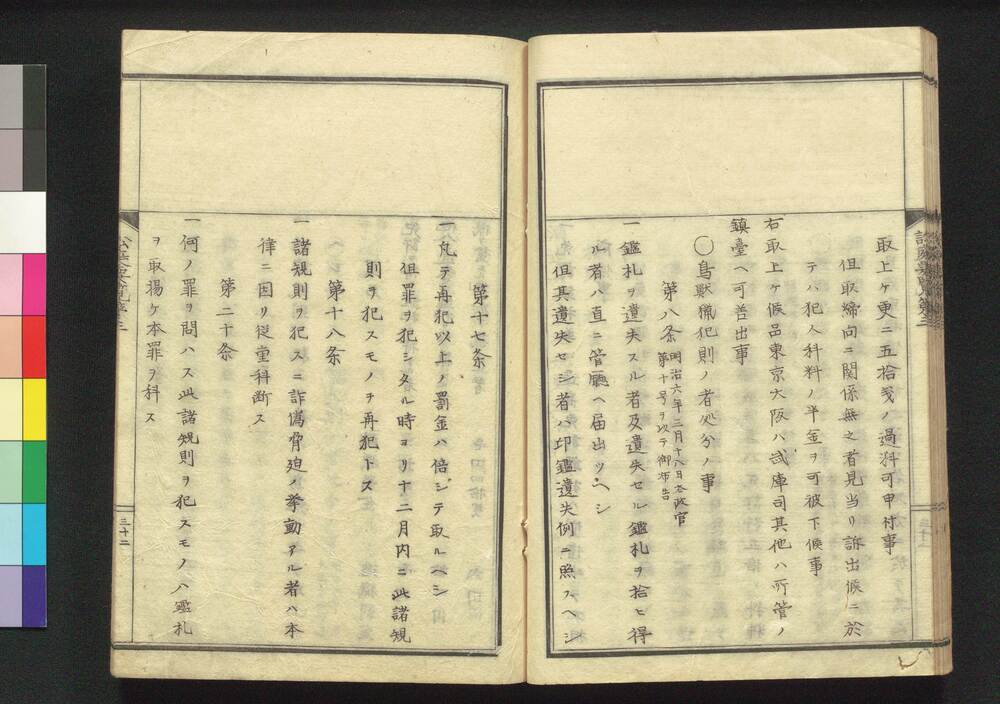 取上ケ更ニ五拾銭ノ過料可申付事
但取締向ニ関係無之者見当リ訴出候ニ於
テハ犯人科料ノ半金ヲ可被下候事
右取上ケ候品東京大阪ハ武庫司其他ハ所管ノ
鎮臺ヘ可差出事
〇鳥獣猟犯則ノ者処分ノ事
第八条 明治六年三月十八日太政官
第十号ヲ以テ御布告
一鑑札ヲ遺失スル者及遺失セル鑑札ヲ拾ヒ得
ル者ハ直ニ管廳ヘ届出ツヘシ
但其遺失セシ者ハ印鑑遺失例ニ照フヘシ
第十七条
一凡テ再犯以上ノ罰金ハ倍シテ取ルヘシ
但罪ヲ犯シタル時ヨリ十二月内ニ此諸規
則ヲ犯スモノヲ再犯トス
第十八条
一諸規則ヲ犯スニ詐偽脅迫ノ挙動アル者ハ本
律ニ因リ従重科断ス
第二十条
一何ノ罪ヲ問ハス此諸規則ヲ犯スモノハ鑑札
ヲ取揚ケ本罪ヲ科ス
三十二